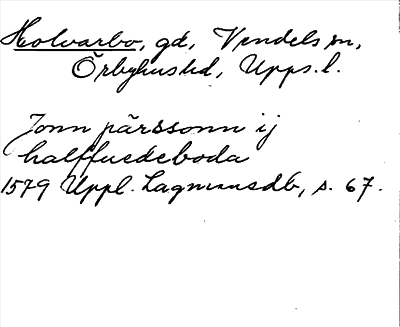 Holvarbo, gd, Vendels sn,
Örbyhus hd, Upps. l.
Jonn pärssonn ij
halffuedeboda
1579 Uppl. Lagmansdb, s. 67.